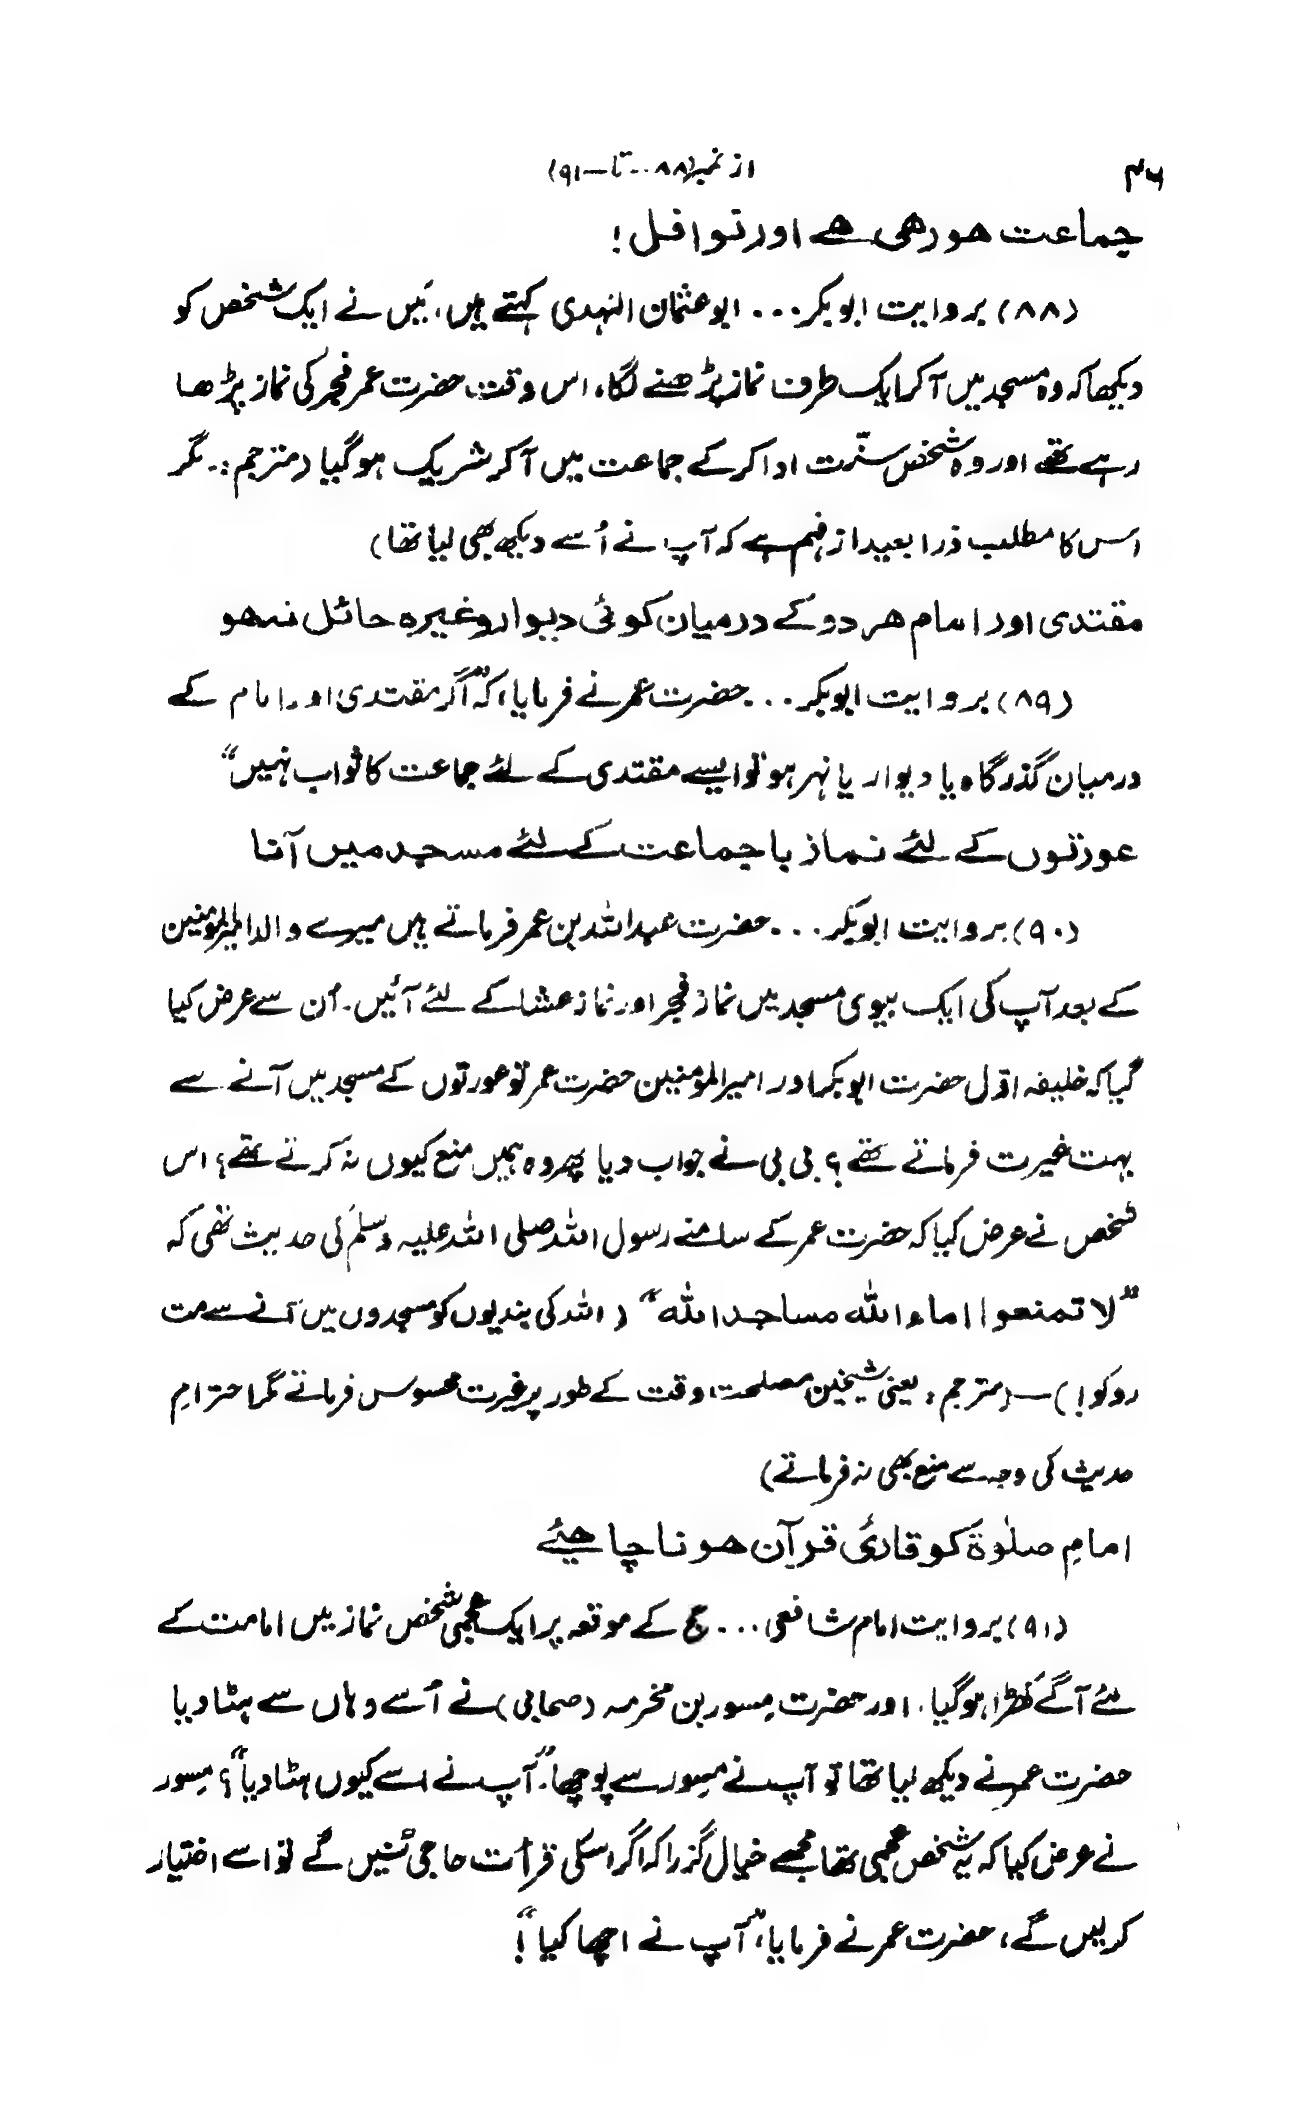 ۴۶
از نمبر (۸۸۔۔ تا—۹۱)
جماعت ھو رھی ھے اور نوافل!
(۸۸) بروایت ابوبکر... ابوعثمان النہدی کہتے ہیں، مَیں نے ایک شخص کو
دیکھا کہ وہ مسجد میں آکر ایک طرف نماز پڑھنے لگا، اس وقت حضرت عمر فجر کی نماز پڑھا
رہے تھے اور وہ شخص سنّت ادا کرکے جماعت میں آکر شریک ہوگیا (مترجم:۔ مگر
اس کا مطلب ذرا بعید از فہم ہے کہ آپ نے اُسے دیکھ بھی لیا تھا)
مقتدی اور امام ھر دو کے درمیان کوئی دیوار وغیرہ حائل نہ ھو
(۸۹) بروایت ابوبکر... حضرت عمر نے فرمایا، کہ "اگر مقتدی اور امام کے
درمیان گذرگاہ یا دیوار یا نہر ہو تو ایسے مقتدی کے لئے جماعت کا ثواب نہیں"
عورتوں کے لئے نماز باجماعت کے لئے مسجد میں آنا
(۹۰) بروایت ابوبکر... حضرت عبداللہ بن عمر فرماتے ہیں میرے والد امیرالمؤمنین
کے بعد آپ کی ایک بیوی مسجد میں نماز فجر اور نماز عشا کے لئے آئیں۔ اُن سے عرض کیا
گیا کہ خلیفہ اوّل حضرت ابوبکر اور امیرالمؤمنین حضرت عمر تو عورتوں کے مسجد میں آنے سے
بہت غیرت فرماتے تھے؟ بی بی نے جواب دیا پھر وہ ہمیں منع کیوں نہ کرتے تھے؟ اس
شخص نے عرض کیا کہ حضرت عمر کے سامنے رسول اللہ صلی اللہ علیہ وسلم کی حدیث تھی کہ
"لا تمنعوا اماء اللہ مساجد اللہ" (اللہ کی بندیوں کو مسجدوں میں آنے سے مت
روکو!)—(مترجم: یعنی شیخین مصلحت وقت کے طور پر غیرت محسوس فرماتے مگر احترامِ
حدیث کی وجہ سے منع بھی نہ فرماتے)
امامِ صلوٰۃ کو قارئ قرآن ھونا چاھئیے
(۹۱) بروایت امام شافعی... حج کے موقعہ پر ایک عجمی شخص نماز میں امامت کے
لئے آگے کھڑا ہوگیا، اور حضرت مِسور بن مخرمہ (صحابی) نے اُسے وہاں سے ہٹا دیا
حضرت عمر نے دیکھ لیا تھا تو آپ نے مِسور سے پوچھا: "آپ نے اسے کیوں ہٹا دیا"؟ مِسور
نے عرض کیا کہ یہ شخص عجمی تھا مجھے خیال گزرا کہ اگر اسکی قرأت حاجی سُنیں گے تو اسے اختیار
کر لیں گے، حضرت عمر نے فرمایا، "آپ نے اچھا کیا"!